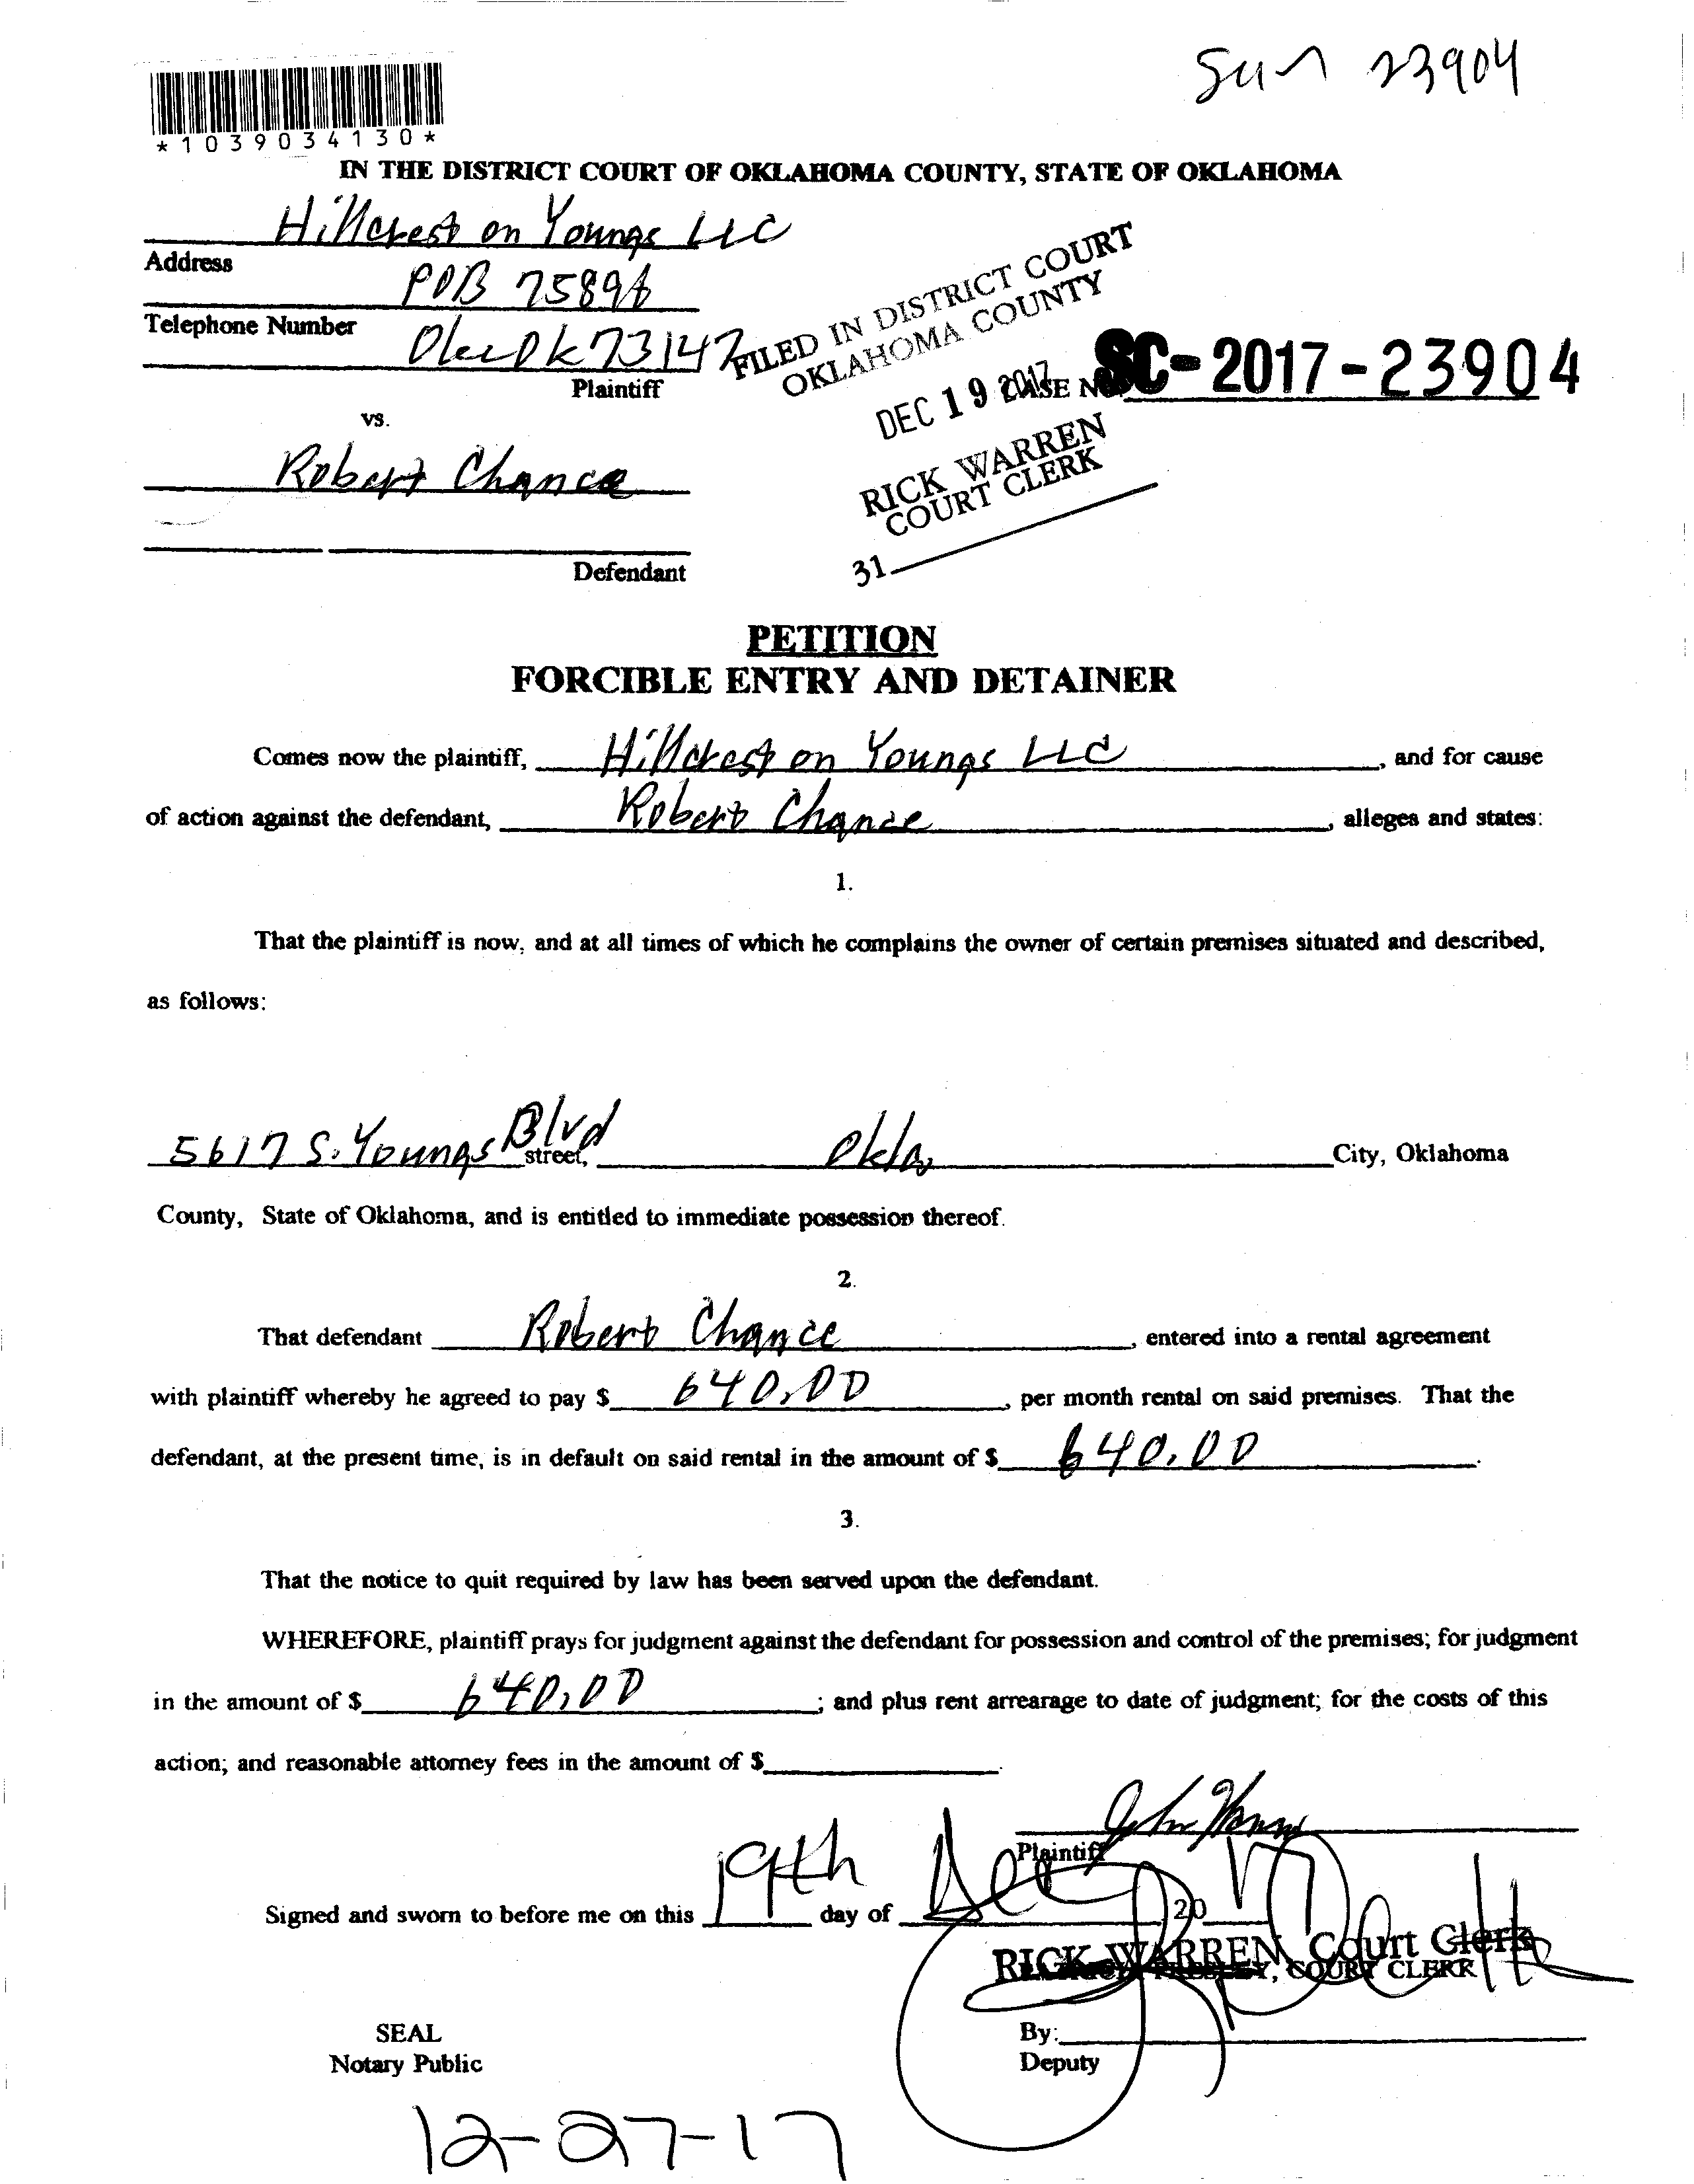 23904
*1039034130*
IN THE DISTRICT COURT OF OKLAHOMA COUNTY, STATE OF OKLAHOMA
Hillcrest on Youngs LLC
Address
POB 75896
Telephone Number
OkcOk 73147
Plaintiff
FILED IN DISTRICT COURT
OKLAHOMA COUNTY
DEC 19 2017
CASE NO. SC-2017-23904
RICK WARREN
COURT CLERK
31
vs.
Robert Chance
Defendant
PETITION
FORCIBLE ENTRY AND DETAINER
Comes now the plaintiff, Hillcrest on Youngs LLC, and for cause
of action against the defendant, Robert Chance, alleges and states:
1.
That the plaintiff is now, and at all times of which he complains the owner of certain premises situated and described,
as follows:
5617 S. Youngs Blvd street, Okla, City, Oklahoma
County, State of Oklahoma, and is entitled to immediate possession thereof.
2.
That defendant Robert Chance, entered into a rental agreement
with plaintiff whereby he agreed to pay $ 640.00, per month rental on said premises. That the
defendant, at the present time, is in default on said rental in the amount of $ 640.00.
3.
That the notice to quit required by law has been served upon the defendant.
WHEREFORE, plaintiff prays for judgment against the defendant for possession and control of the premises; for judgment
in the amount of $ 640.00; and plus rent arrearage to date of judgment; for the costs of this
action; and reasonable attorney fees in the amount of $.
John
Plaintiff
Signed and sworn to before me on this 19th day of Dec, 2017
RICK WARREN, Court Clerk
COURT CLERK
SEAL
By:
Notary Public
Deputy
12-27-17